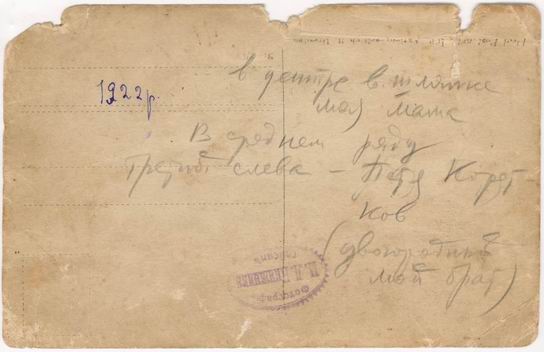 1922 г.
в центре в шляпке
моя мама
В среднем ряду
третий слева – Петя Корот-
ков
(двоюродный
мой брат)
Фотограф